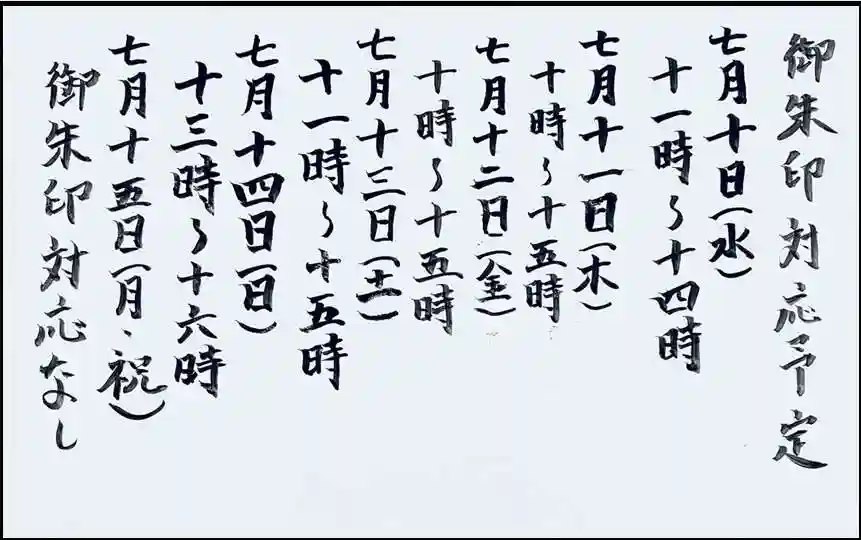 御朱印対応予定
七月十日(水)
十一時〜十四時
七月十一日(木)
十時〜十五時
七月十二日(金)
十時〜十五時
七月十三日(土)
十一時〜十五時
七月十四日(日)
十三時〜十六時
七月十五日(月、祝)
御朱印対応なし